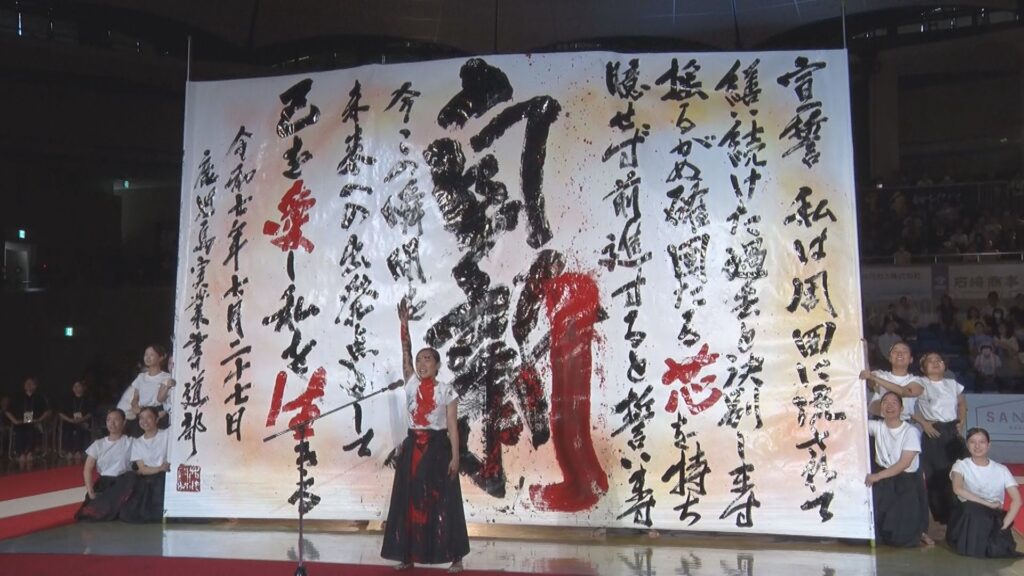 宣誓 私は周囲に流されて
繕い続けた過去と決別します
揺るがぬ確固たる芯を持ち
臆せず前進すると誓います
今この瞬間を
未来への出発点として
己を愛し私を生きます
令和七年七月二十七日
鹿児島実業書道部